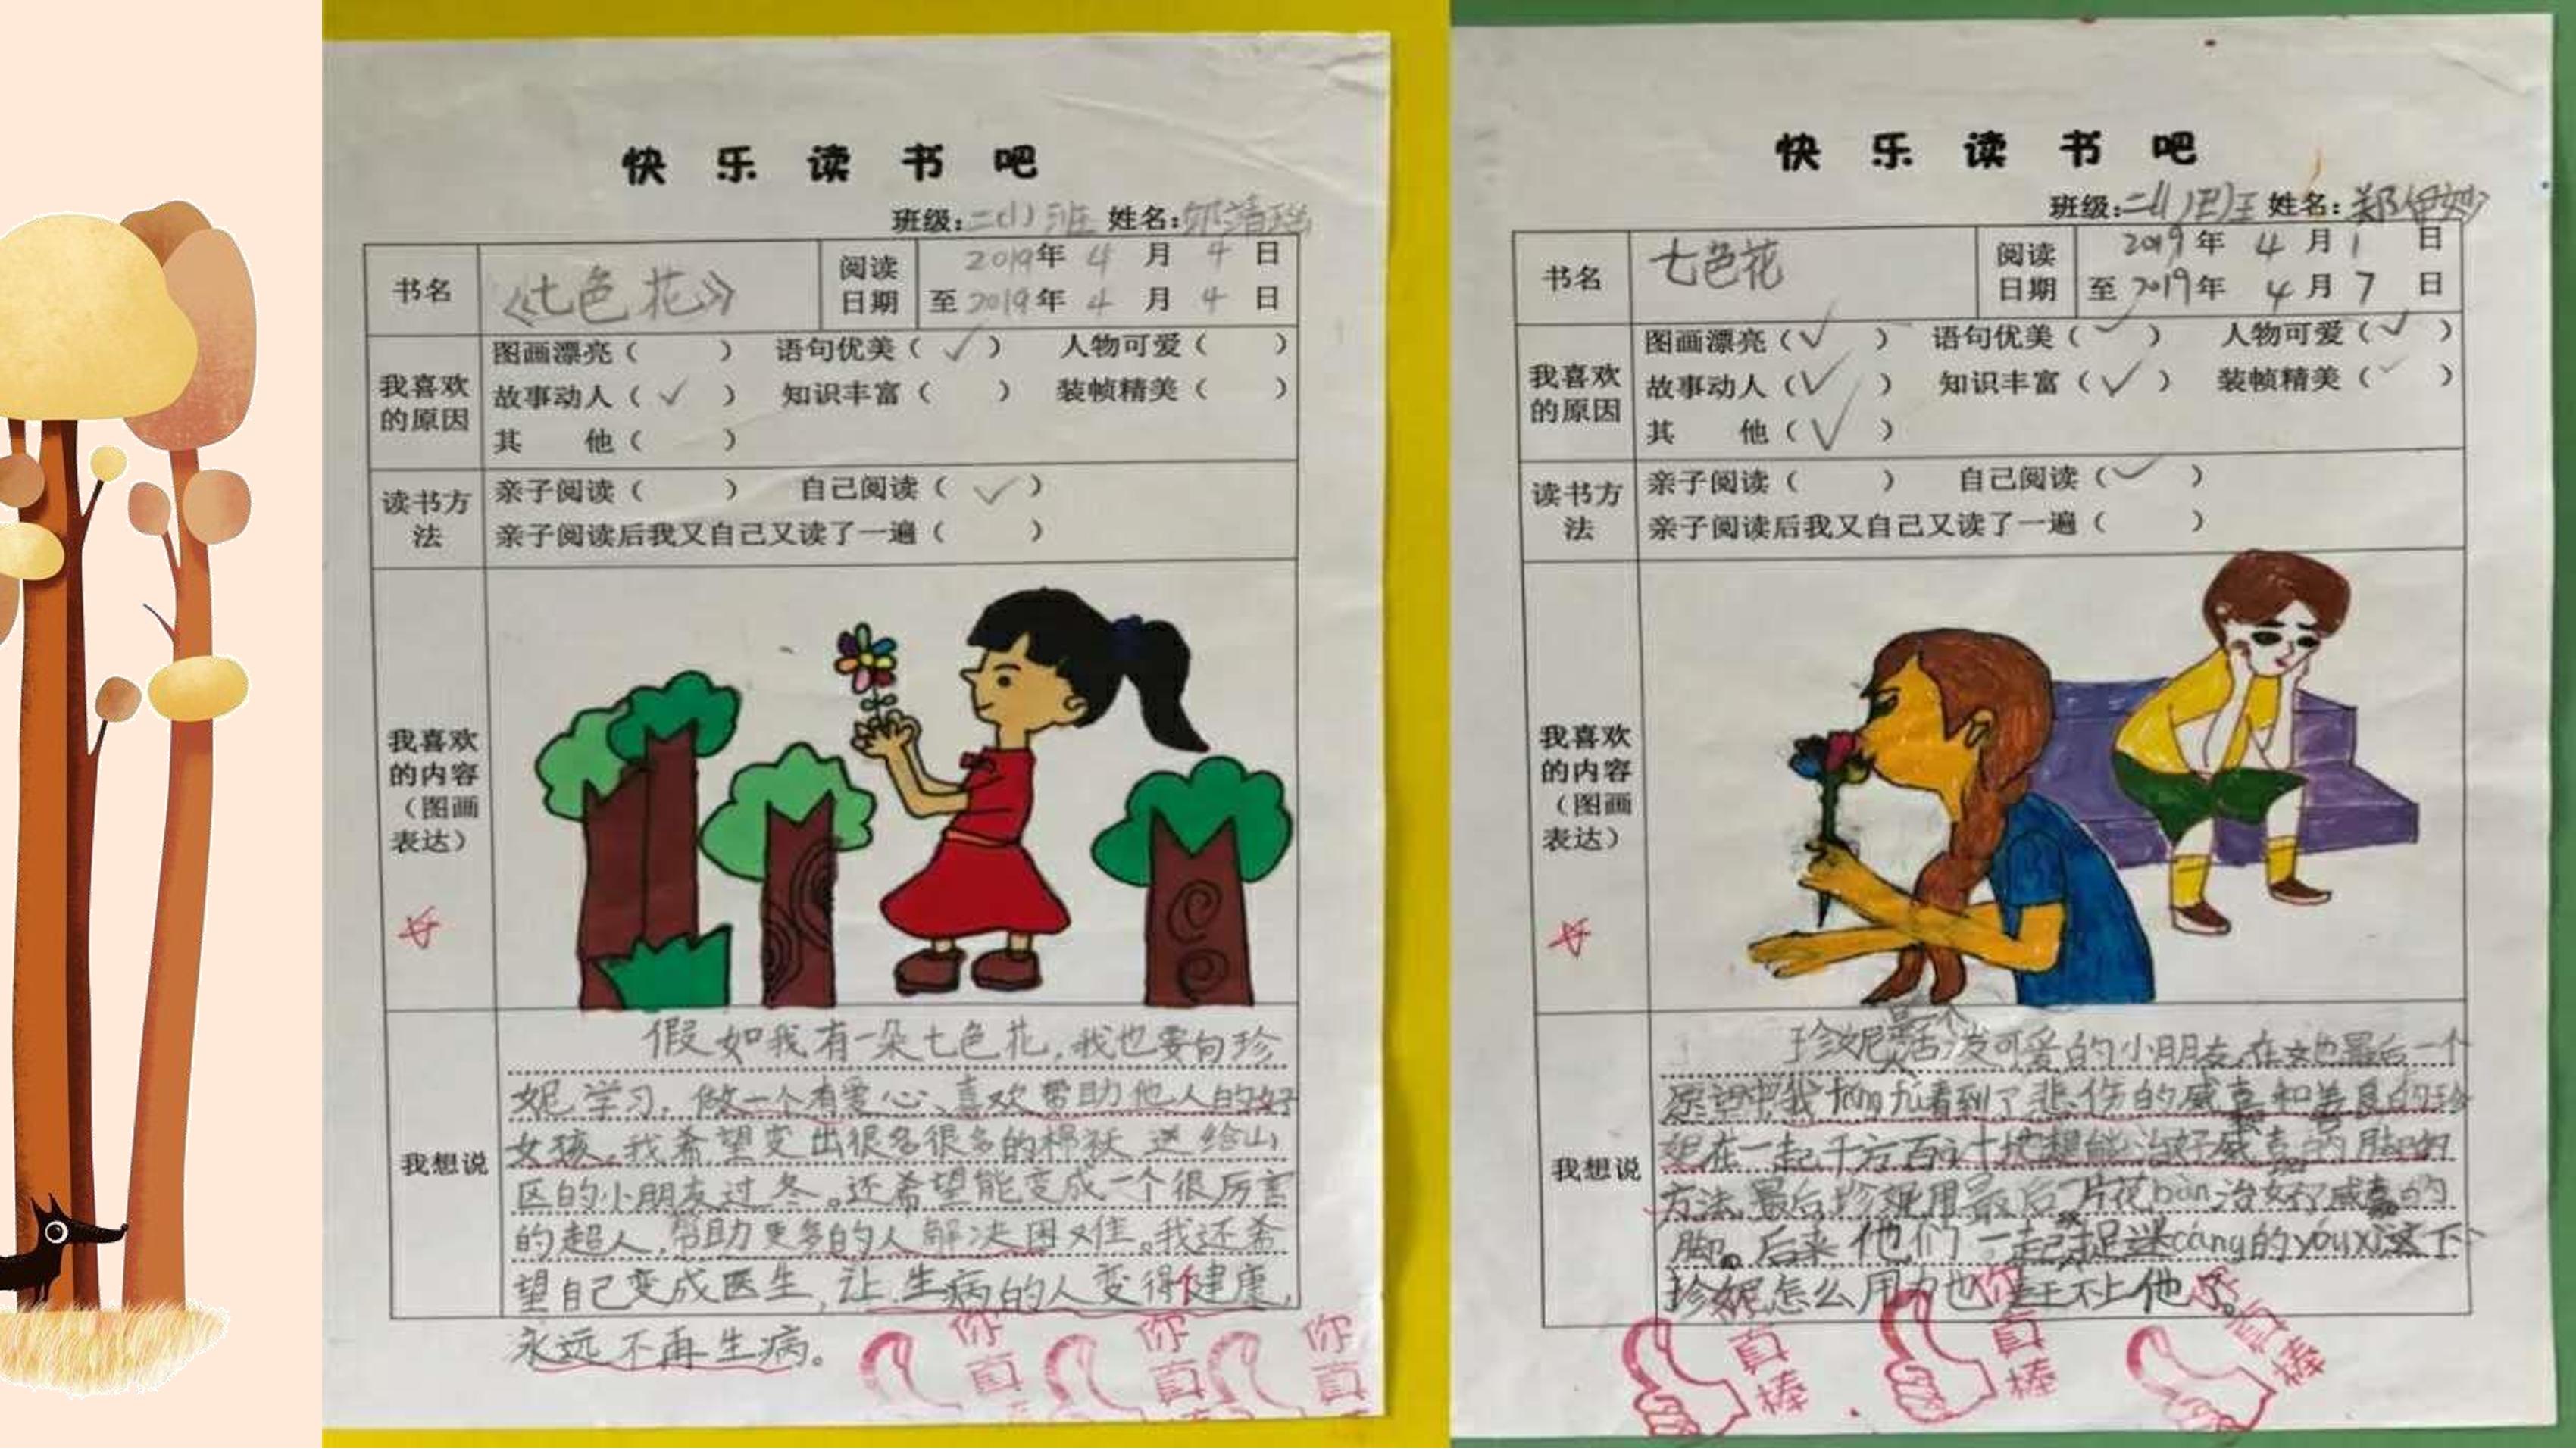 快乐读书吧
班级:二(1)班 姓名:邬靖
书名
《七色花》
阅读
日期
2019年 4 月 4 日
至 2019年 4 月 4 日
我喜欢
的原因
图画漂亮( ) 语句优美(✓) 人物可爱( )
故事动人(✓) 知识丰富( ) 装帧精美( )
其 他( )
读书方
法
亲子阅读( ) 自己阅读(✓)
亲子阅读后我又自己又读了一遍( )
我喜欢
的内容
(图画
表达)
我想说
假如我有一朵七色花,我也要向珍
妮学习,做一个有爱心、喜欢帮助他人的好
女孩。我希望变出很多很多的棉袄送给山
区的小朋友过冬。还希望能变成一个很厉害
的超人,帮助更多的人解决困难。我还希
望自己变成医生,让生病的人变得健康,
永远不再生病。
你真
你真
你真
快乐读书吧
班级:二(1)班 姓名:郑伊妙
书名
七色花
阅读
日期
2019年 4 月 1 日
至 2019年 4 月 7 日
我喜欢
的原因
图画漂亮(✓) 语句优美(✓) 人物可爱(✓)
故事动人(✓) 知识丰富(✓) 装帧精美(✓)
其 他(✓)
读书方
法
亲子阅读( ) 自己阅读(✓)
亲子阅读后我又自己又读了一遍( )
我喜欢
的内容
(图画
表达)
我想说
珍妮是个活泼可爱的小朋友,在她最后一个
愿望中我fǎng fú看到了悲伤的威嘉和善良的珍
妮在一起千方百计地想能治好威嘉的脚的
方法,最后珍妮用最后一片花bàn治好了威嘉的
脚。后来他们一起捉迷cáng的yóuxì这下
珍妮怎么用力也 不上他了。
你真棒
你真棒
你真棒